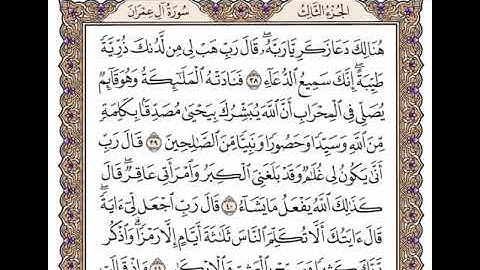 الجزء الثالث سورة آل عمران
هُنَالِكَ دَعَا زَكَرِيَّا رَبَّهُۥ ۖ قَالَ رَبِّ هَبْ لِى مِن لَّدُنكَ ذُرِّيَّةً
طَيِّبَةً ۖ إِنَّكَ سَمِيعُ ٱلدُّعَآءِ ٣٨ فَنَادَتْهُ ٱلْمَلَٰٓئِكَةُ وَهُوَ قَآئِمٌ
يُصَلِّى فِى ٱلْمِحْرَابِ أَنَّ ٱللَّهَ يُبَشِّرُكَ بِيَحْيَىٰ مُصَدِّقًۢا بِكَلِمَةٍ
مِّنَ ٱللَّهِ وَسَيِّدًا وَحَصُورًا وَنَبِيًّا مِّنَ ٱلصَّٰلِحِينَ ٣٩ قَالَ رَبِّ
أَنَّىٰ يَكُونُ لِى غُلَٰمٌ وَقَدْ بَلَغَنِىَ ٱلْكِبَرُ وَٱمْرَأَتِى عَاقِرٌ ۖ قَالَ
كَذَٰلِكَ ٱللَّهُ يَفْعَلُ مَا يَشَآءُ ٤٠ قَالَ رَبِّ ٱجْعَل لِّىٓ ءَايَةً ۖ
قَالَ ءَايَتُكَ أَلَّا تُكَلِّمَ ٱلنَّاسَ ثَلَٰثَةَ أَيَّامٍ إِلَّا رَمْزًا ۗ وَٱذْكُر
رَّبَّكَ كَثِيرًا وَسَبِّحْ بِٱلْعَشِىِّ وَٱلْإِبْكَٰرِ ٤١ وَإِذْ قَالَتِ